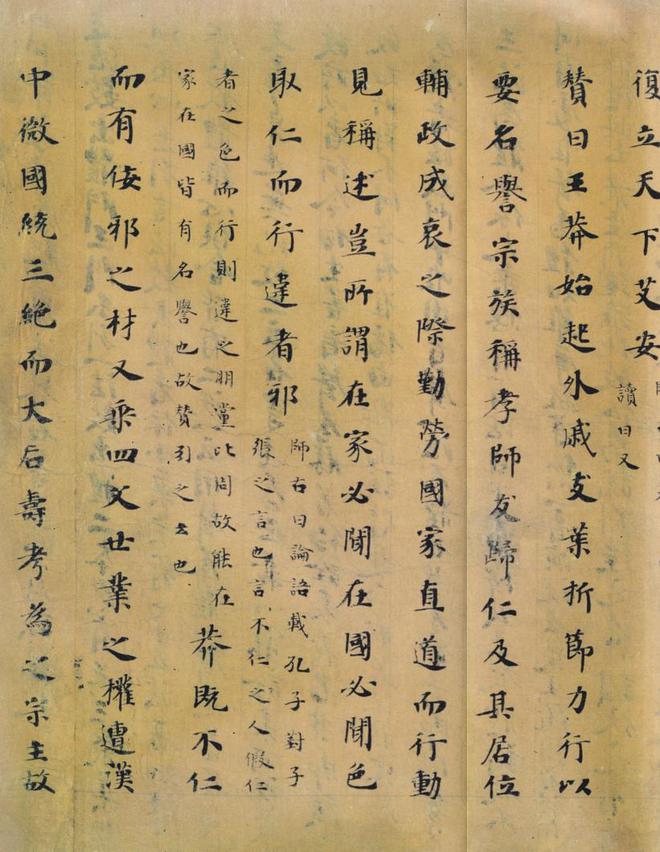 復立天下艾安
讀曰又
贊曰王莽始起外戚支葉折節力行以
要名譽宗族稱孝師友歸仁及其居位
輔政成哀之際勤勞國家直道而行動
見稱述豈所謂在家必聞在國必聞色
取仁而行違者邪
師古曰論語載孔子對子
張之言也言不仁之人假仁
者之色而行則違之明黨比周故能在
家在國皆有名譽也故贊引之云也
莽既不仁
而有佞邪之材又乘四父世業之權遭漢
中微國統三絕而大后壽考為之宗主故